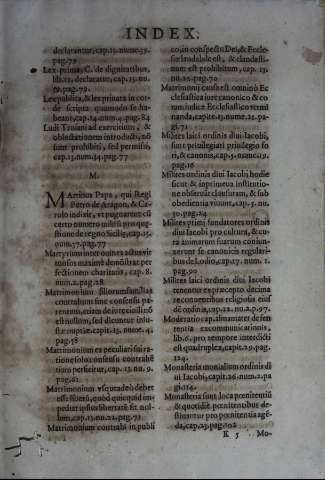 INDEX.
declarantur, cap.13.nume.35.
pag.79
Lex prima, C. de dignitatibus,
lib.12, declaratur, cap.13.nu.
59.pag.79.
Lex publica, & lex priuata in cor
de scripta quomodo se ha
beant, cap.14.num.4.pag.84
Ludi Troiani ad exercitium, &
oblectationem introducti, nõ
sunt prohibiti, sed permissi,
cap.13.num.14.pag.77
M.
MArtinus Papa, qui Regi
Petro de Aragon, & Ca-
rolo indixit, vt pugnarent cũ
certo numero militũ pro quę
stione de regno Sicilię, cap.13.
num.37.pag.77
Martyrium inter omnes actus vir
tuosos maximè demonstrat per
fectionem charitatis, cap.8.
num.2.pag.28
Matrimonium filiorumfamilias
contractum sine consensu pa-
rentum, etiam de iure ciuili nõ
est nullum, sed dicuntur iniu-
stæ nuptiæ. capit.13. nume.4.
pag.58
Matrimonium ex peculiari fui ra
tione solo consensu contrahẽ
tium perficitur, cap.13. nu.9.
pag.61
Matrimonium vsqueadeò debet
esse liberũ, quòd quicquid im-
pediat ipsius libertatẽ sit nul-
lum, cap.13.nu.22.pag.71
Matrimonium contrahi in publi
co, in conspectu Dei, & Eccle-
siæ laudabile est, & clandesti-
num est prohibitum, cap. 13.
nu.20.pag.70
Matrimonij causas est omninò Ec
clesiastica iure canonico & co
ram iudice Ecclesiastico termi
nanda, capite.13.nume.21. pa-
gi.71
Milites laici ordinis diui Iacobi,
sunt priuilegiati priuilegio fo
ri, & canonis, cap.5.nume.19.
pag.16
Milites ordinis diui Iacobi hodie
sicut & in primæua institutio-
ne obseruãt clausuram, & sub
obedientia viuunt, cap.5. nu.
30. pag.24
Milites primi fundatores ordinis
diui Iacobi pro cultura, & cu-
ra animarum suarum coniun-
xerunt se canonicis regulari-
bus de Lodio, cap.17. num. 1.
pag.90
Milites laici ordinis diui Iacobi
tenentur ex præcepto decima
re coram fratribus religiosis eius
dẽ ordinis, cap.22.nu.2.p.97.
Moderatio cap. alma mater de sen
tentia excommunicationis,
lib.6. pro tempore interdicti
est quadruplex, capit.29.pag.
124.
Monasteria monialium ordinis di
ui Iacobi, capit.26.num.2.pa
gi.114.
Monasteria sunt loca pœnitentiũ
& quotidiè pœnitentibus de-
stinantur pro pœnitentia agẽ-
da, cap.23.pag.102
K 5 Mo-